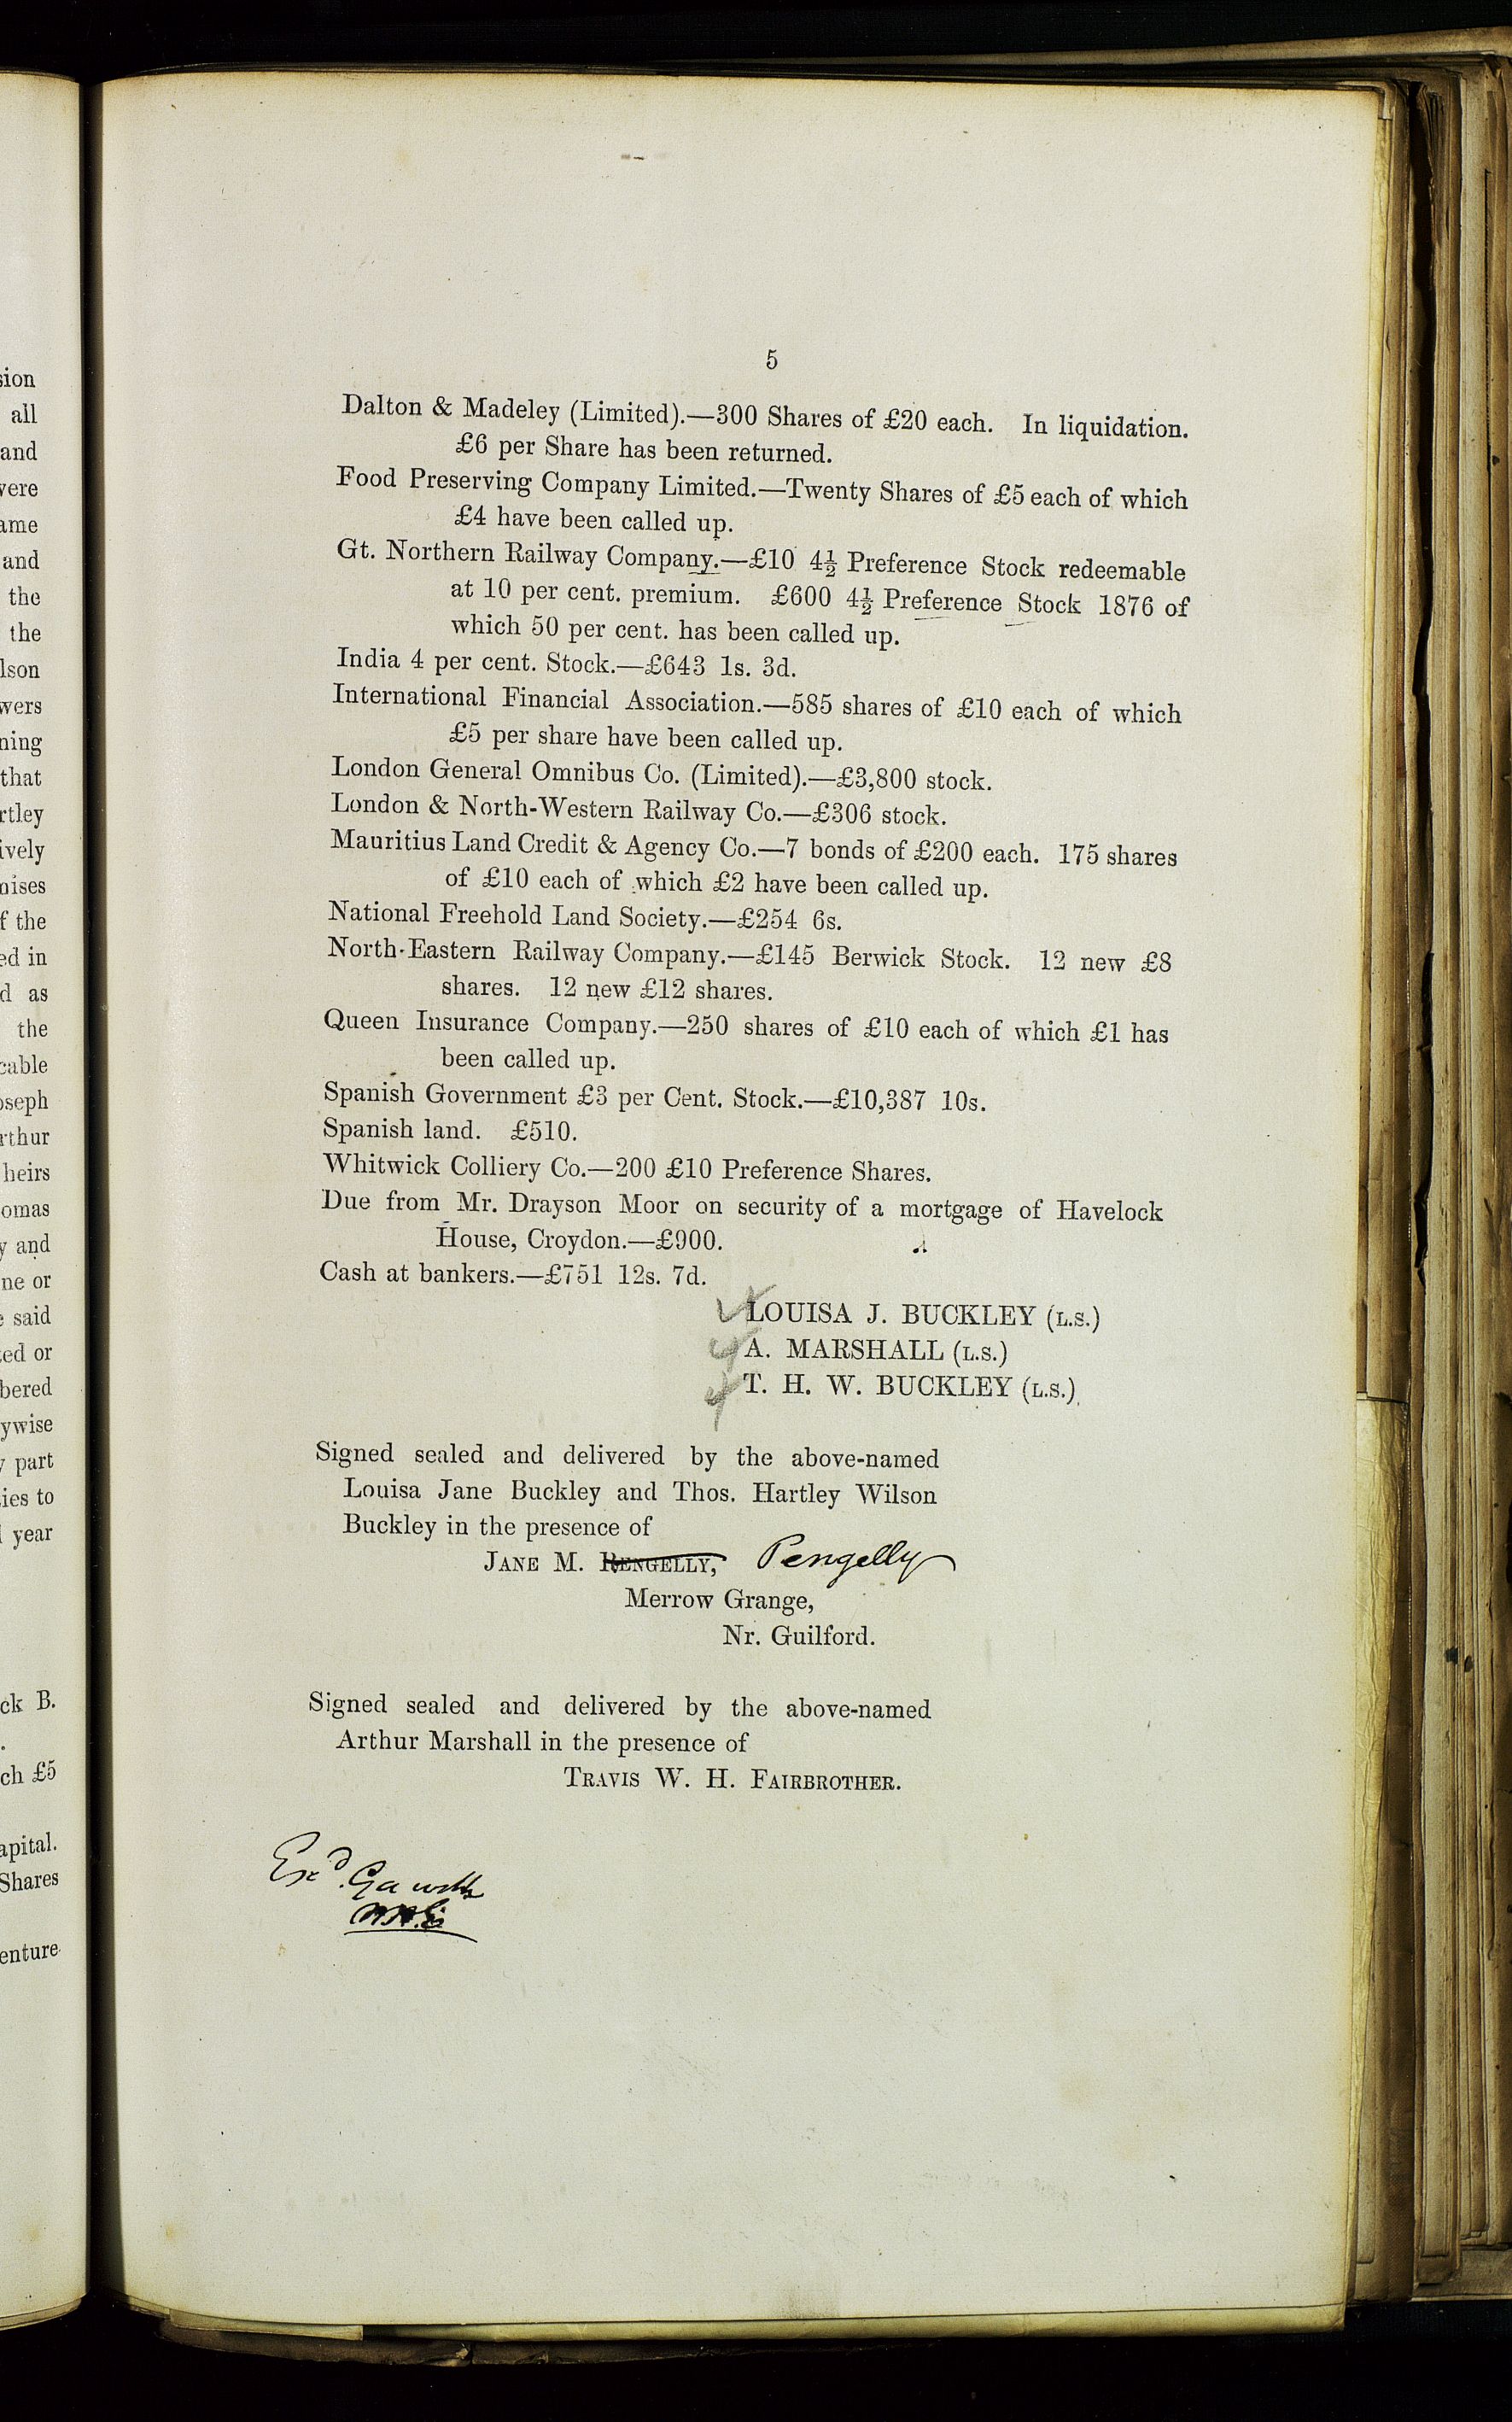 sion
all
and
were
ame
and
the
the
lson
wers
ning
that
rtley
ively
nises
f the
ed in
d as
the
cable
oseph
rthur
heirs
omas
y and
ne or
e said
ted or
bered
ywise
y part
ties to
d year
ck B.
ch £5
apital.
Shares
enture
5
Dalton & Madeley (Limited).—300 Shares of £20 each. In liquidation.
£6 per Share has been returned.
Food Preserving Company Limited.—Twenty Shares of £5 each of which
£4 have been called up.
Gt. Northern Railway Company.—£10 4½ Preference Stock redeemable
at 10 per cent. premium. £600 4½ Preference Stock 1876 of
which 50 per cent. has been called up.
India 4 per cent. Stock.—£643 1s. 3d.
International Financial Association.—585 shares of £10 each of which
£5 per share have been called up.
London General Omnibus Co. (Limited).—£3,800 stock.
London & North-Western Railway Co.—£306 stock.
Mauritius Land Credit & Agency Co.—7 bonds of £200 each. 175 shares
of £10 each of which £2 have been called up.
National Freehold Land Society.—£254 6s.
North-Eastern Railway Company.—£145 Berwick Stock. 12 new £8
shares. 12 new £12 shares.
Queen Insurance Company.—250 shares of £10 each of which £1 has
been called up.
Spanish Government £3 per Cent. Stock.—£10,387 10s.
Spanish land. £510.
Whitwick Colliery Co.—200 £10 Preference Shares.
Due from Mr. Drayson Moor on security of a mortgage of Havelock
House, Croydon.—£900.
Cash at bankers.—£751 12s. 7d.
LOUISA J. BUCKLEY (L.S.)
A. MARSHALL (L.S.)
T. H. W. BUCKLEY (L.S.)
Signed sealed and delivered by the above-named
Louisa Jane Buckley and Thos. Hartley Wilson
Buckley in the presence of
JANE M. RENGELLY, Pengelly
Merrow Grange,
Nr. Guilford.
Signed sealed and delivered by the above-named
Arthur Marshall in the presence of
TRAVIS W. H. FAIRBROTHER.
Exd.